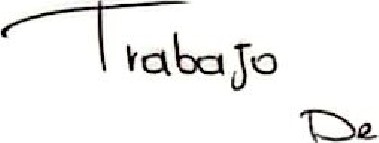 Trabajo
De